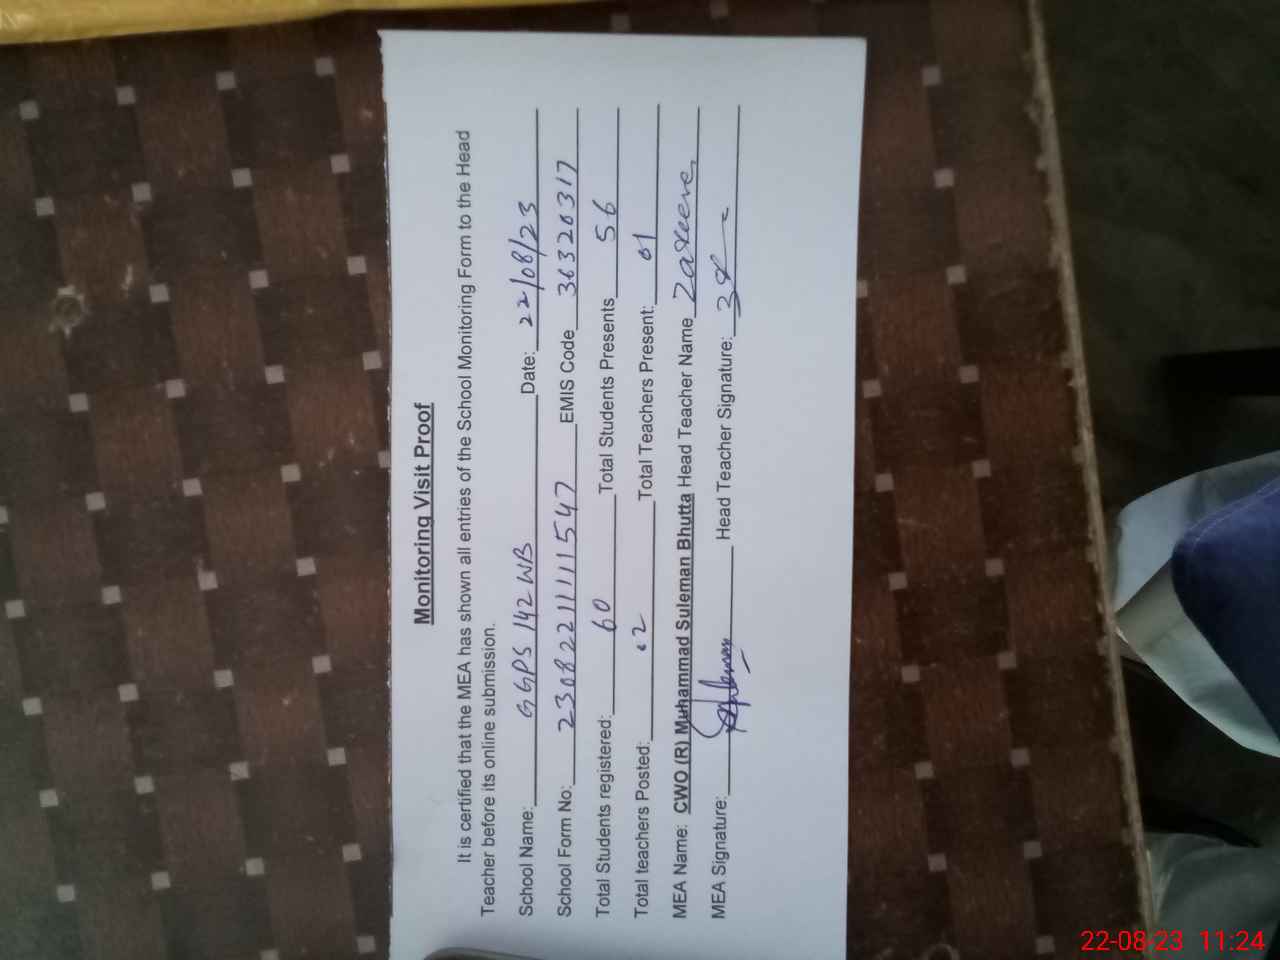 Monitoring Visit Proof
It is certified that the MEA has shown all entries of the School Monitoring Form to the Head
Teacher before its online submission.
School Name: GGPS 142 WB Date: 22/08/23
School Form No: 230822111111547 EMIS Code 36320317
Total Students registered: 60 Total Students Presents 56
Total teachers Posted: 02 Total Teachers Present: 01
MEA Name: CWO (R) Muhammad Suleman Bhutta Head Teacher Name
MEA Signature: Head Teacher Signature:
22-08-23 11:24